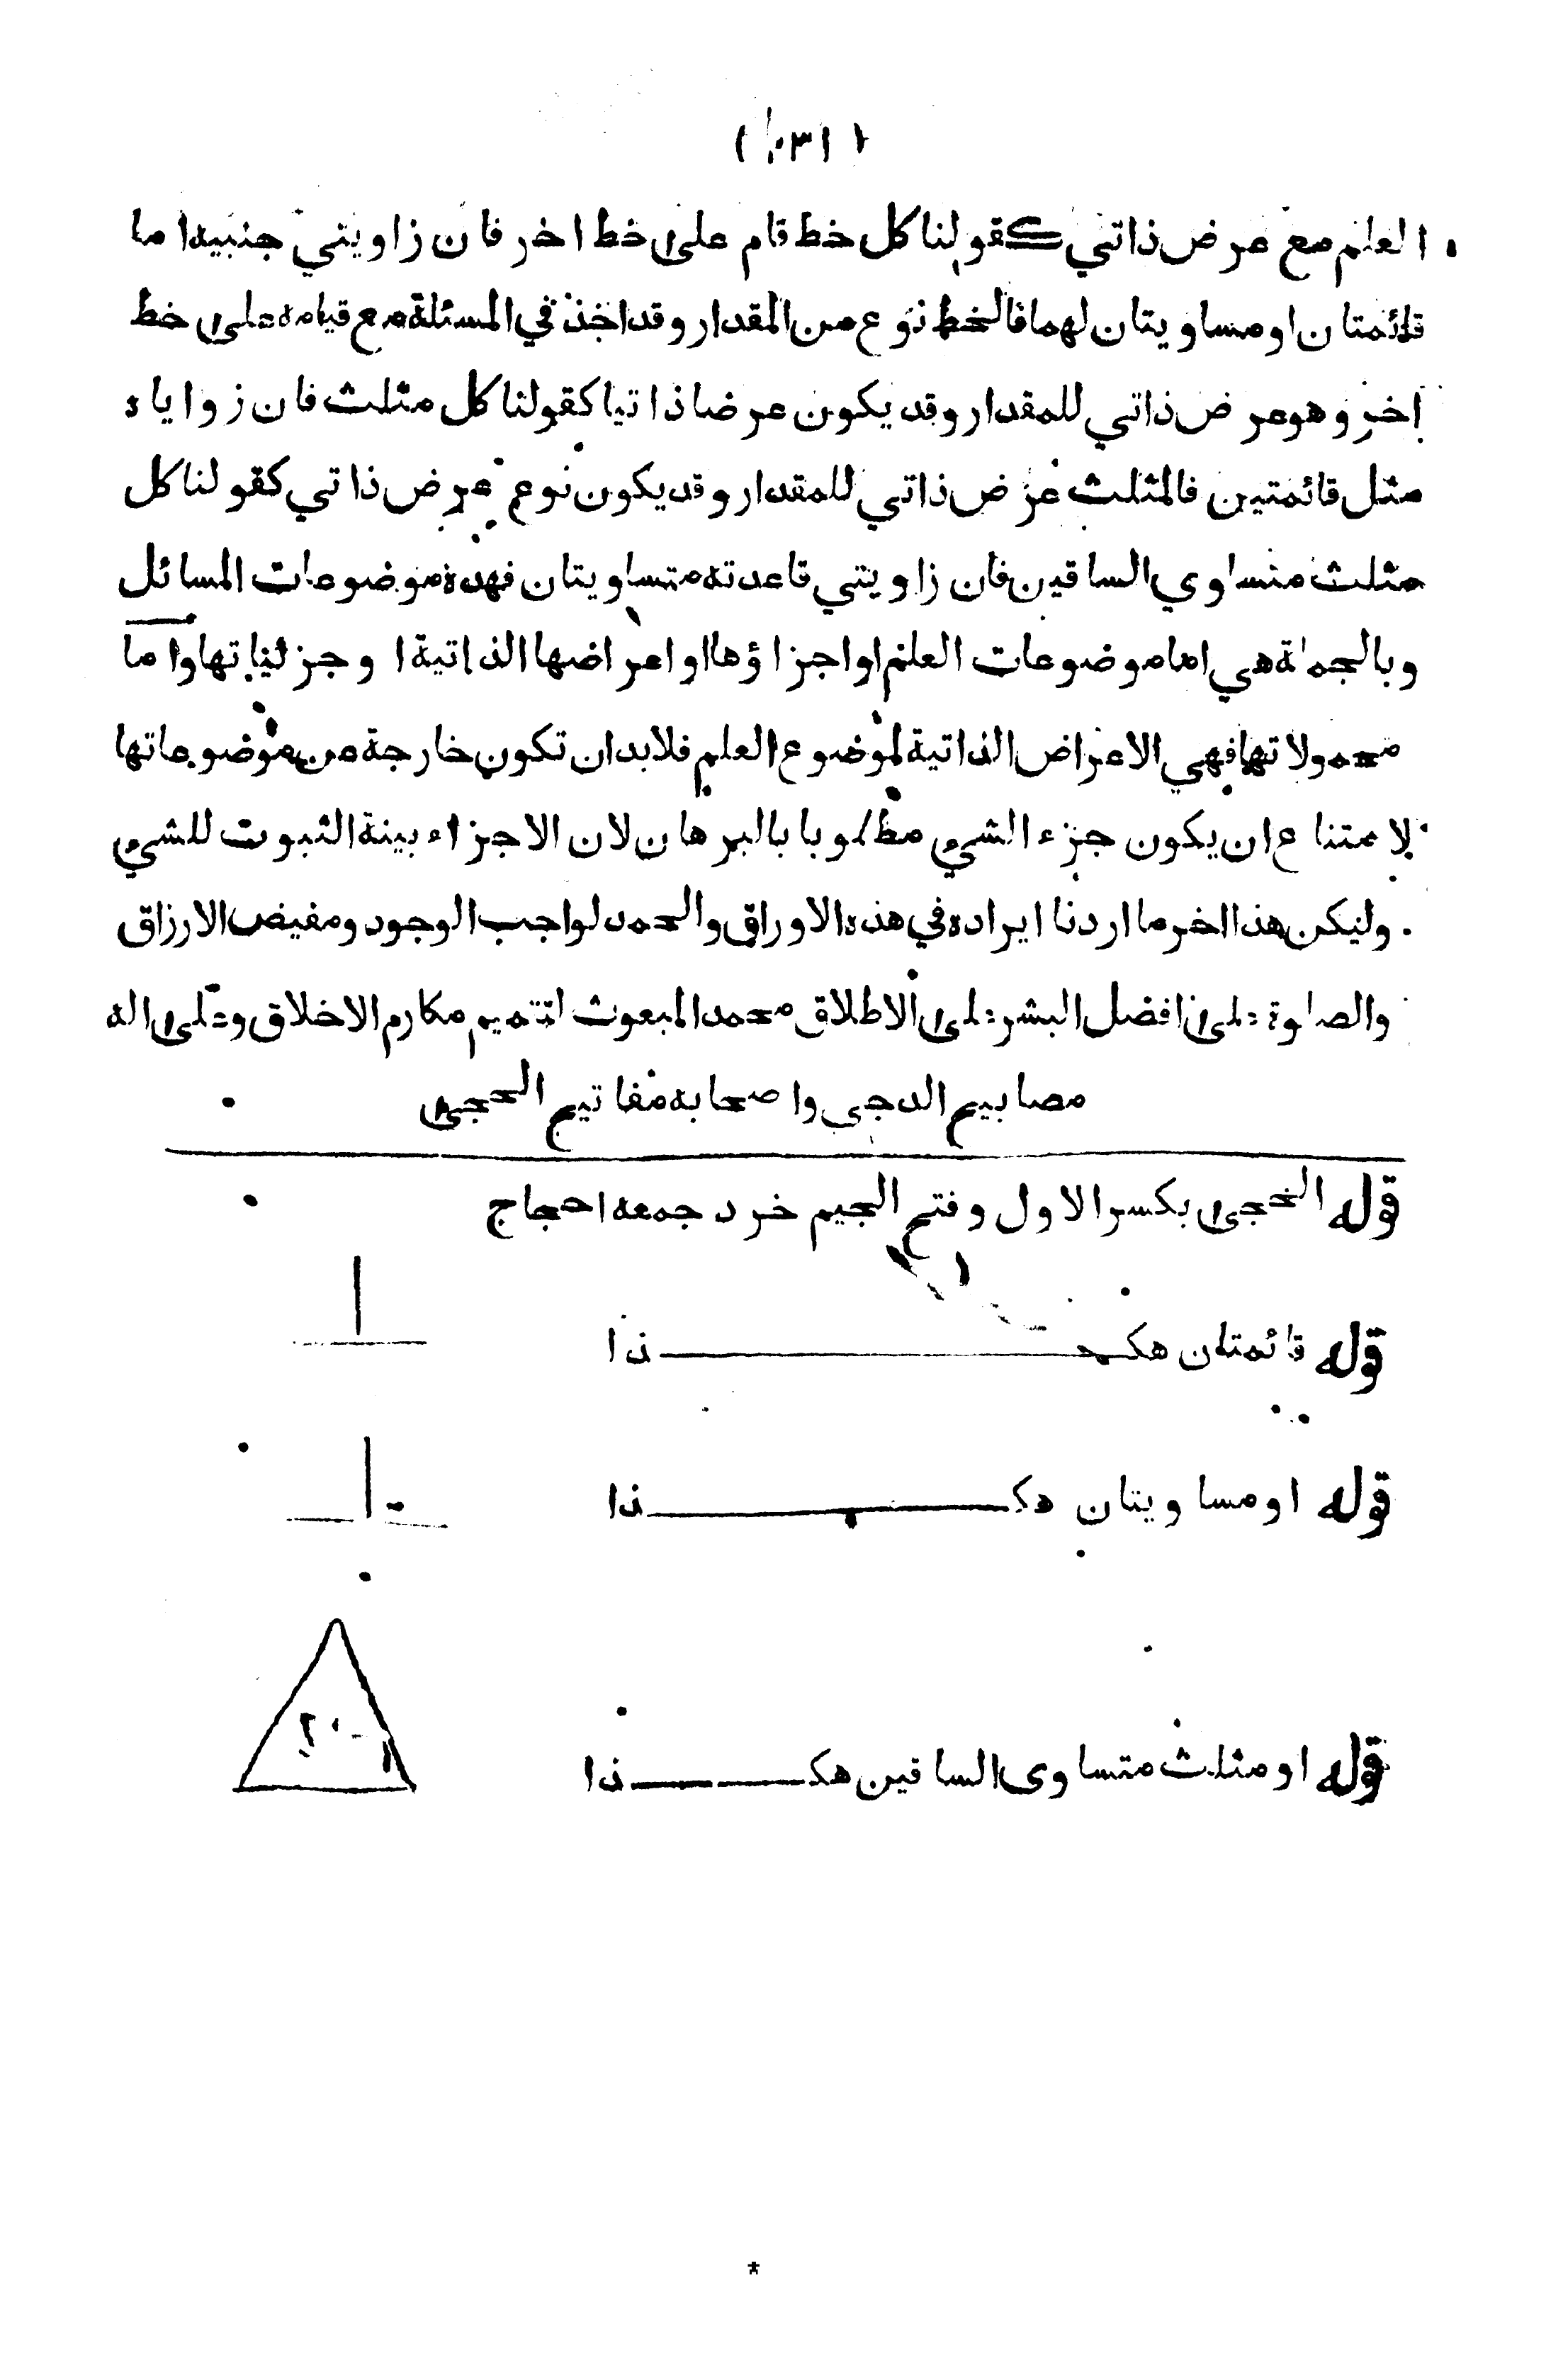 العلم مع عرض ذاتي كقولنا كل خط قام على خط اخر فان زاويتي جنبيه اما
قائمتان او مساويتان لهما فالخط نوع من المقدار وقد اخذ في المسئلة مع قيامه على خط
اخر وهو عرض ذاتي للمقدار وقد يكون عرضا ذاتيا كقولنا كل مثلث فان زواياه
مثل قائمتين فالمثلث عرض ذاتي للمقدار وقد يكون نوع عرض ذاتي كقولنا كل
مثلث متساوي الساقين فان زاويتي قاعدته متساويتان فهذه موضوعات المسائل
وبالجملة هي اما موضوعات العلم او اجزاؤها او اعراضها الذاتية او جزئياتها واما
محمولاتها فهي الاعراض الذاتية لموضوع العلم فلابد ان تكون خارجة عن موضوعاتها
لامتناع ان يكون جزء الشيء مطلوبا بالبرهان لان الاجزاء بينة الثبوت للشيء
وليكن هذا اخر ما اردنا ايراده في هذه الاوراق والحمد لواجب الوجود ومفيض الارزاق
والصلوة على افضل البشر على الاطلاق محمد المبعوث لتتميم مكارم الاخلاق وعلى اله
مصابيح الدجى واصحابه مفاتيح الحجى
قوله الحجى بكسر الاول وفتح الجيم خرد جمعه احجاج
قوله قائمتان هكـــــذا
قوله او مساويتان هكـــــذا
قوله او مثلث متساوى الساقين هكـــــذا
*